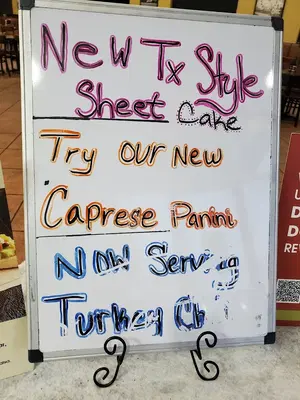 New Tx Style
Sheet Cake
Try our New
Caprese Panini
Now Serving
Turkey